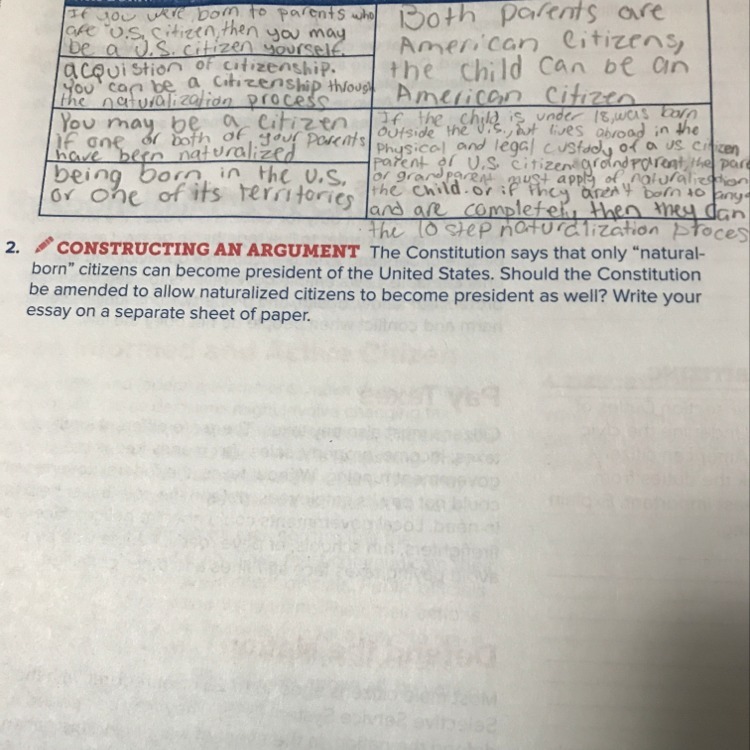 If you were born to parents who
are U.S. citizen, then you may
be a U.S. citizen yourself.
acquistion of citizenship.
you can be a citizenship through
the naturalization process
You may be a citizen
If one or both of your parents
have been naturalized
being born in the U.S.
or one of its territories
Both parents are
American citizens,
the child can be an
American citizen
If the child is under 18, was born
outside the U.S., but lives abroad in the
physical and legal custody of a US citizen
parent or U.S. citizen grandparent, the
or grandparent must apply of
the child. or if they aren't born to
and are completely, then they can
the 10 step naturalization proces
2. CONSTRUCTING AN ARGUMENT The Constitution says that only "natural-
born" citizens can become president of the United States. Should the Constitution
be amended to allow naturalized citizens to become president as well? Write your
essay on a separate sheet of paper.